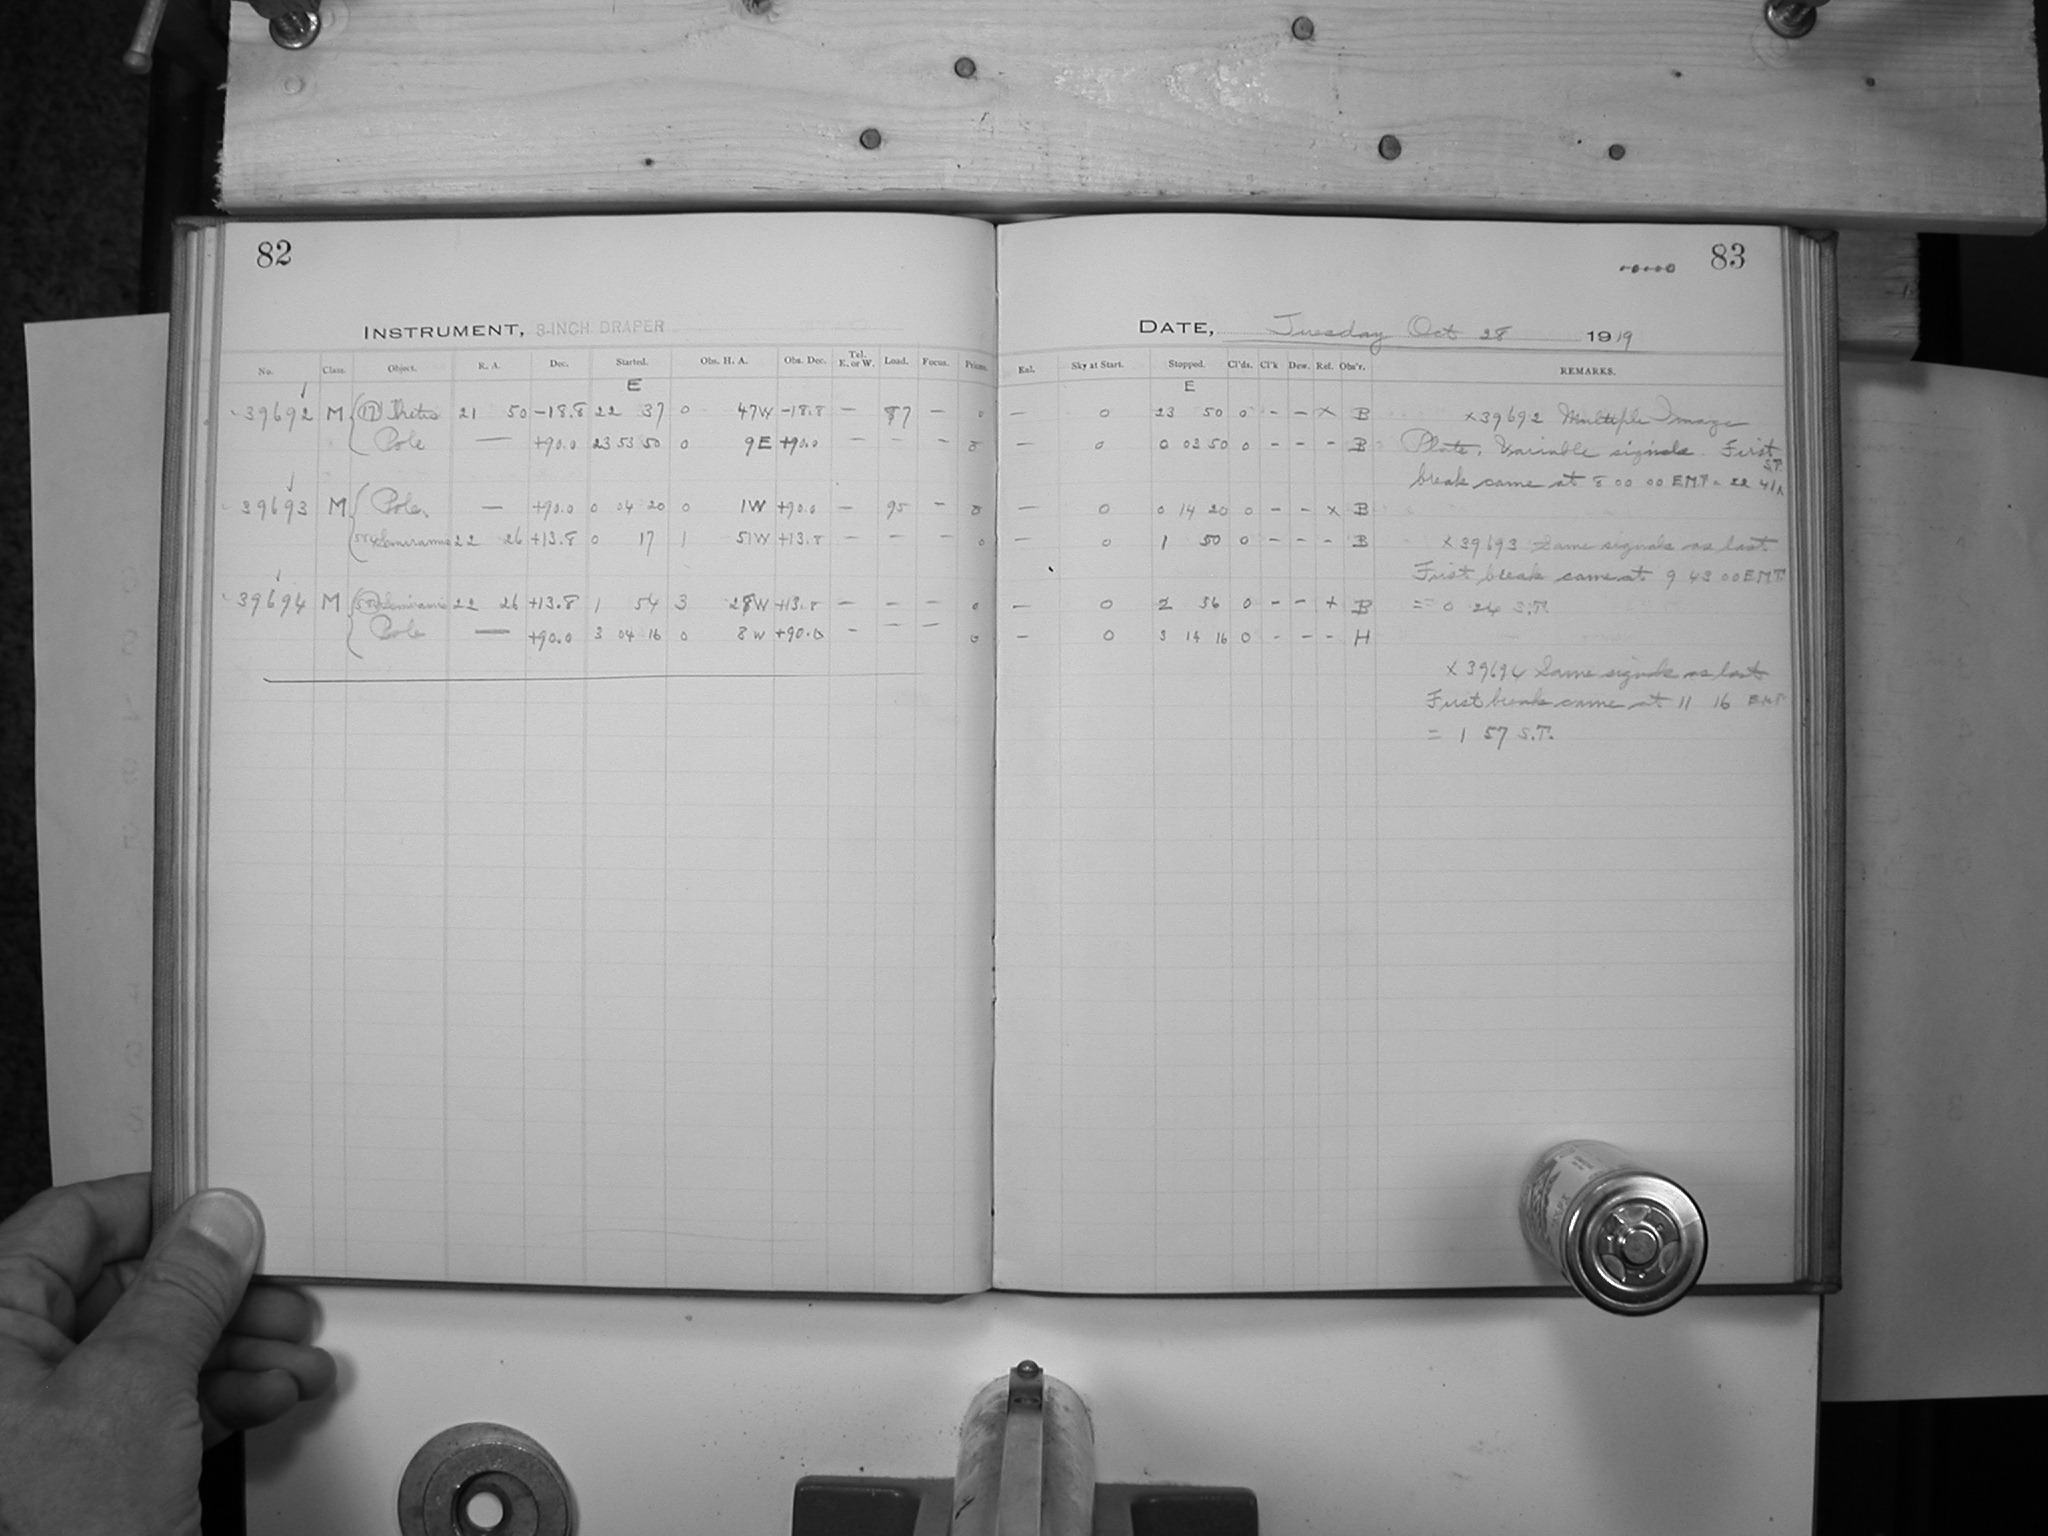 82
INSTRUMENT, 8-INCH DRAPER
No. Class. Object. R. A. Dec. Started. Obs. H. A. Obs. Dec. Tel. E. or W. Load. Focus. Prisms.
E
39692 M (17) Thetis 21 50 -18.8 22 37 0 47W -18.8 — 87 — 0
Pole — +90.0 23 53 50 0 9E +90.0 — — — 0
39693 M Pole — +90.0 0 04 20 0 1W +90.0 — 95 — 0
Semiramis 22 26 +13.8 0 17 1 51W +13.8 — — — 0
39694 M Semiramis 22 26 +13.8 1 54 3 28W +13.8 — — — 0
Pole — +90.0 3 04 16 0 8W +90.0 — — — 0
83
DATE, Tuesday Oct 28 1919
Sky at Start. Stopped. Cl'ds. Cl'k Dew. Ref. Obs'r. REMARKS.
E
— 0 23 50 0 - - x B
— 0 0 03 50 0 - - - B
— 0 0 14 20 0 - - x B
— 0 1 50 0 - - - B
— 0 2 36 0 - - + B
— 0 3 14 16 0 - - - H
x 39692 Multiple Image
Plate. Variable signals. First
break came at 8 00 00 EMT = 22 41 S.T.
x 39693 Same signals as last
First break came at 9 43 00 EMT
= 0 24 S.T.
x 39694 Same signals as last
First break came at 11 16 EMT
= 1 57 S.T.